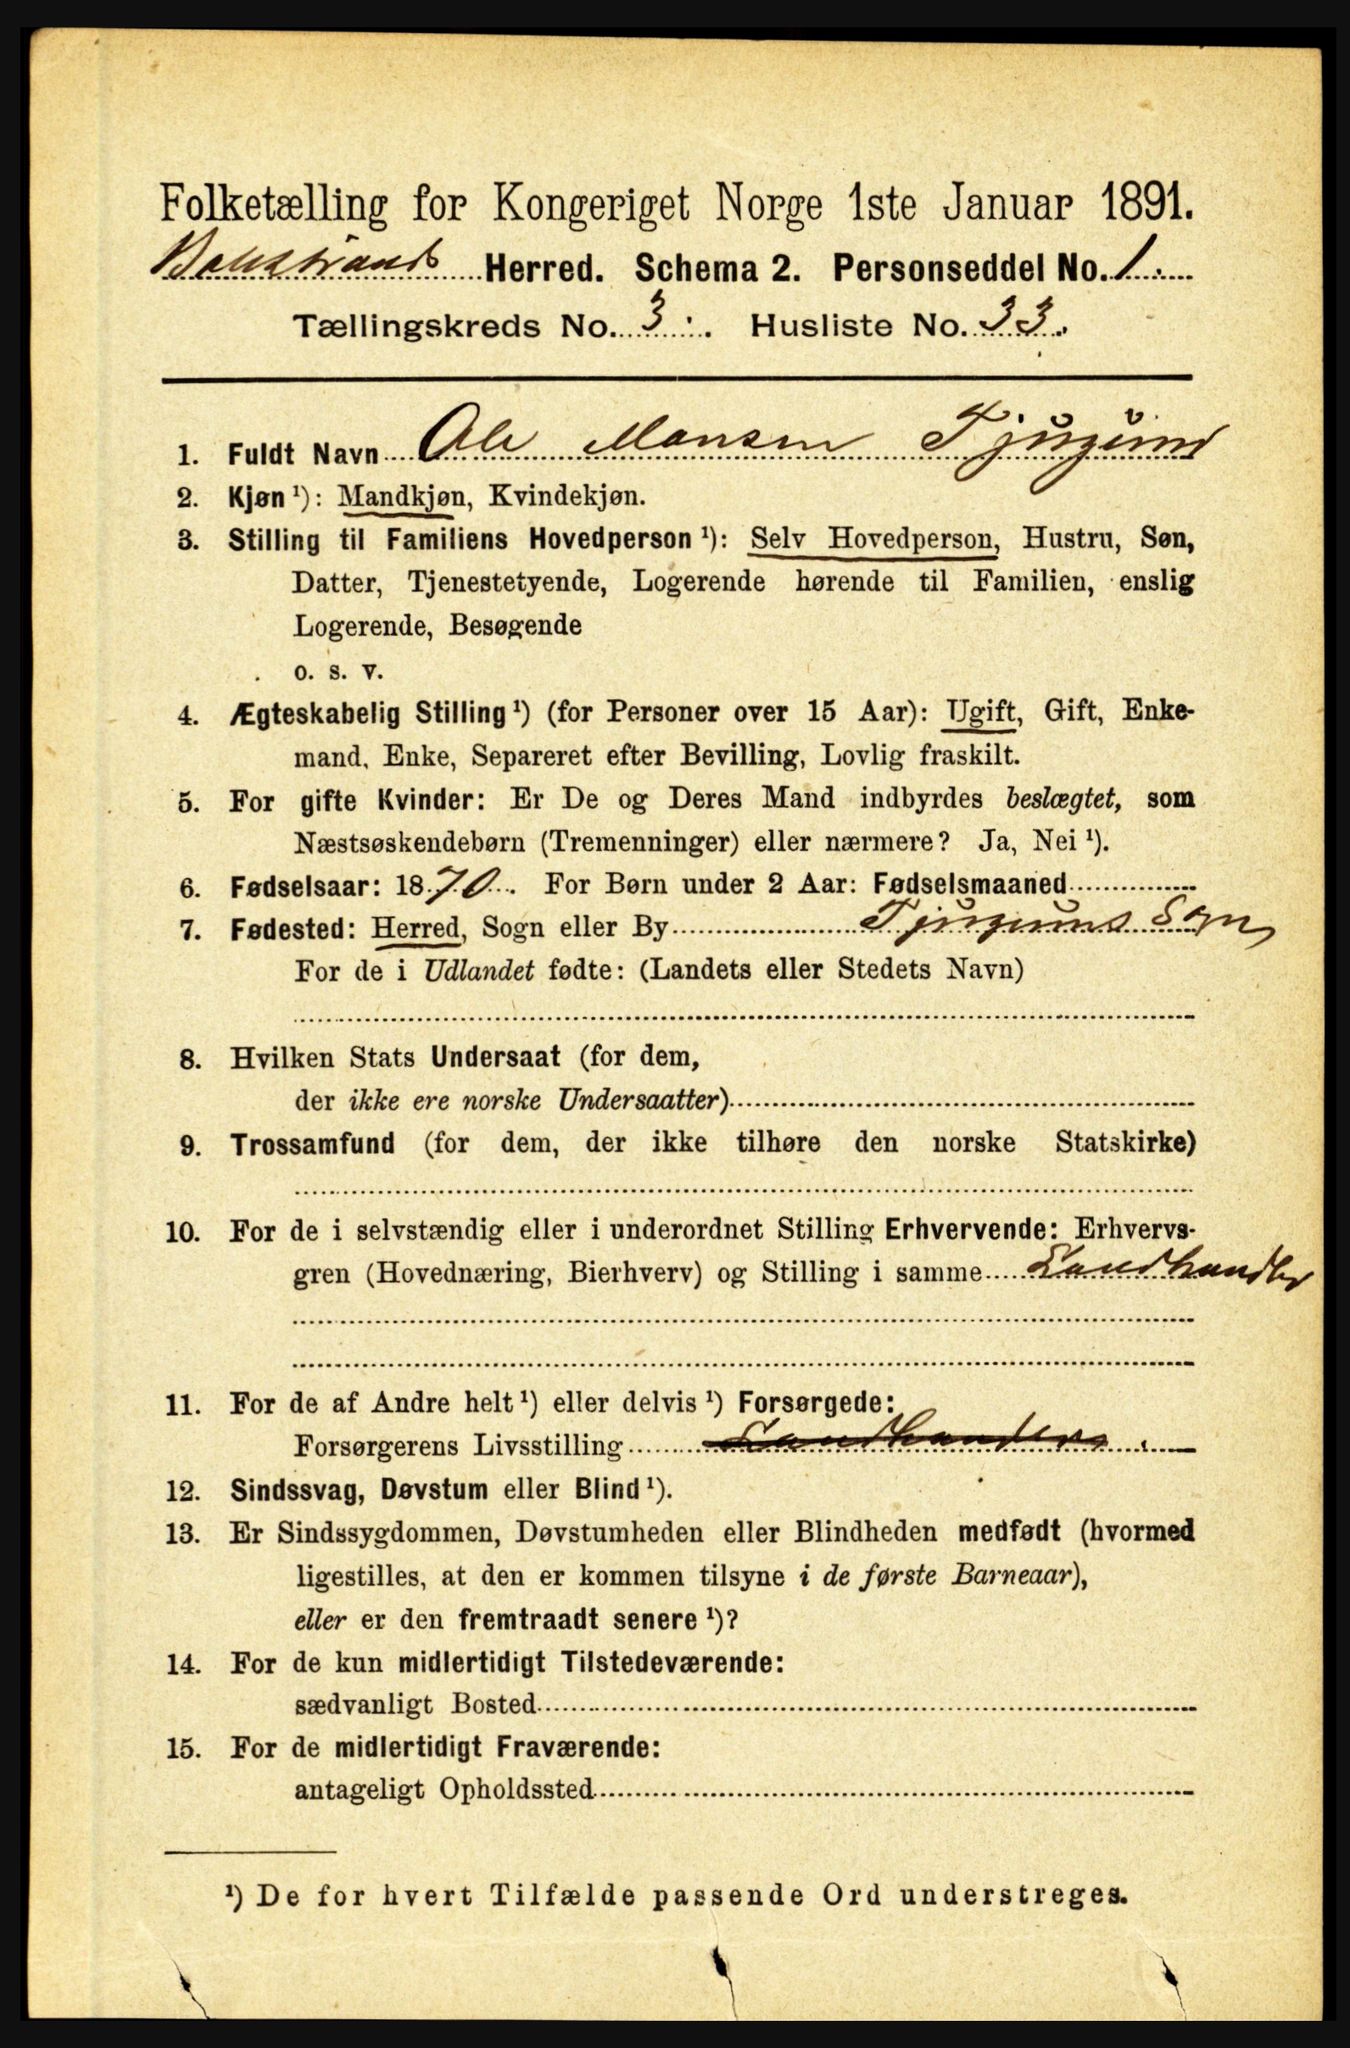 Folketælling for Kongeriget Norge 1ste Januar 1891.
Balestrand Herred. Schema 2. Personseddel No. 1.
Tællingskreds No. 3. Husliste No. 33.
1. Fuldt Navn Ole Monsen Tjugum
2. Kjøn ¹): Mandkjøn, Kvindekjøn.
3. Stilling til Familiens Hovedperson ¹): Selv Hovedperson, Hustru, Søn,
Datter, Tjenestetyende, Logerende hørende til Familien, enslig
Logerende, Besøgende
o. s. v.
4. Ægteskabelig Stilling ¹) (for Personer over 15 Aar): Ugift, Gift, Enke-
mand, Enke, Separeret efter Bevilling, Lovlig fraskilt.
5. For gifte Kvinder: Er De og Deres Mand indbyrdes beslægtet, som
Næstsøskendebørn (Tremenninger) eller nærmere? Ja, Nei ¹).
6. Fødselsaar: 1870. For Børn under 2 Aar: Fødselsmaaned
7. Fødested: Herred, Sogn eller By Tjugums Sogn
For de i Udlandet fødte: (Landets eller Stedets Navn)
8. Hvilken Stats Undersaat (for dem,
der ikke ere norske Undersaatter)
9. Trossamfund (for dem, der ikke tilhøre den norske Statskirke)
10. For de i selvstændig eller i underordnet Stilling Erhvervende: Erhvervs-
gren (Hovednæring, Bierhverv) og Stilling i samme Landhandler
11. For de af Andre helt ¹) eller delvis ¹) Forsørgede:
Forsørgerens Livsstilling
12. Sindssvag, Døvstum eller Blind ¹).
13. Er Sindssygdommen, Døvstumheden eller Blindheden medfødt (hvormed
ligestilles, at den er kommen tilsyne i de første Barneaar),
eller er den fremtraadt senere ¹)?
14. For de kun midlertidigt Tilstedeværende:
sædvanligt Bosted
15. For de midlertidigt Fraværende:
antageligt Opholdssted
¹) De for hvert Tilfælde passende Ord understreges.